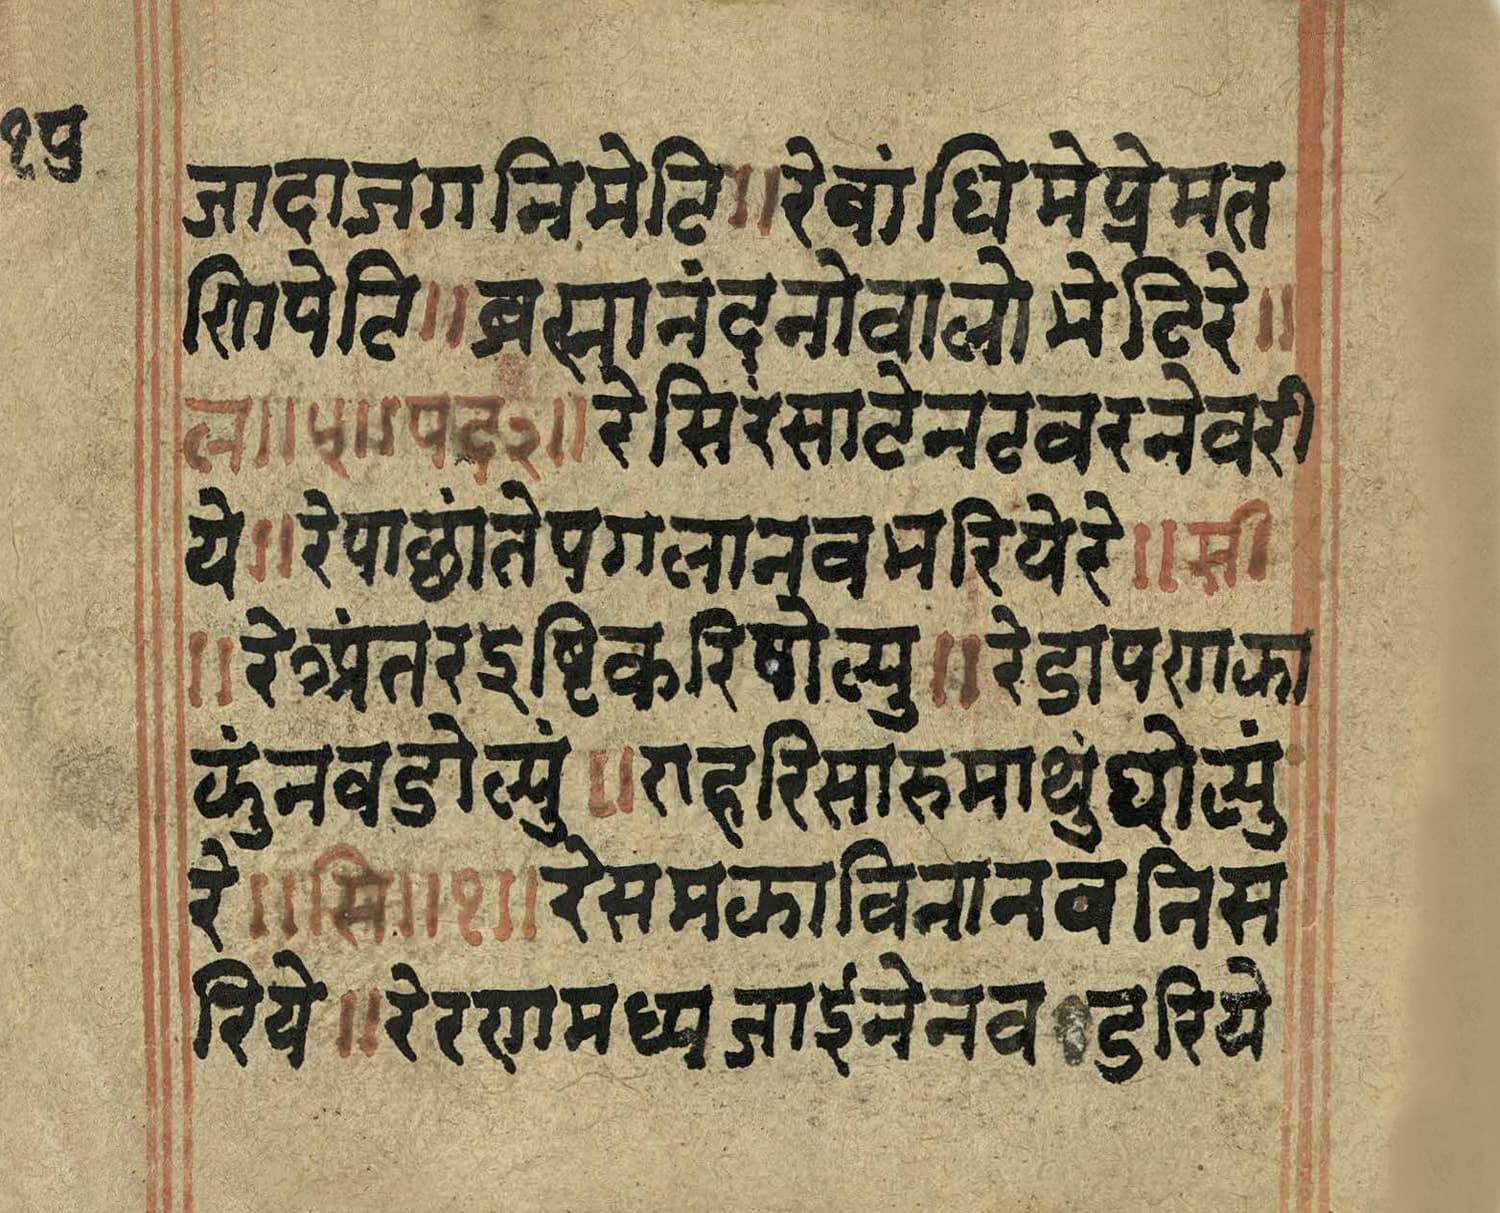 १५
जादाजगनिमेटि॥रेबांधिमेप्रेमत
णिपेटि॥ब्रह्मानंदनोवालोमेटिरे॥
ल॥५॥पद२॥रेसिरसाटेनटवरनेवरी
ये॥रेपाछांतेपगलानवभरियेरे॥सी
॥रेअंतरद्रष्टिकरिषोल्यु॥रेडापणझा
झुंनवडोल्युं॥एहरिसारुमाथुंघोल्युं
रे॥सि॥१॥रेसमझाविनानवनिस
रिये॥रेरणमध्यजाईनेनवडरिये